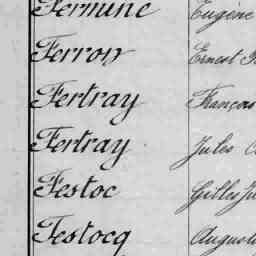 Fermine Eugène
Ferron Ernest
Fertray François
Fertray Jules
Festoc Gilles
Festocq Auguste